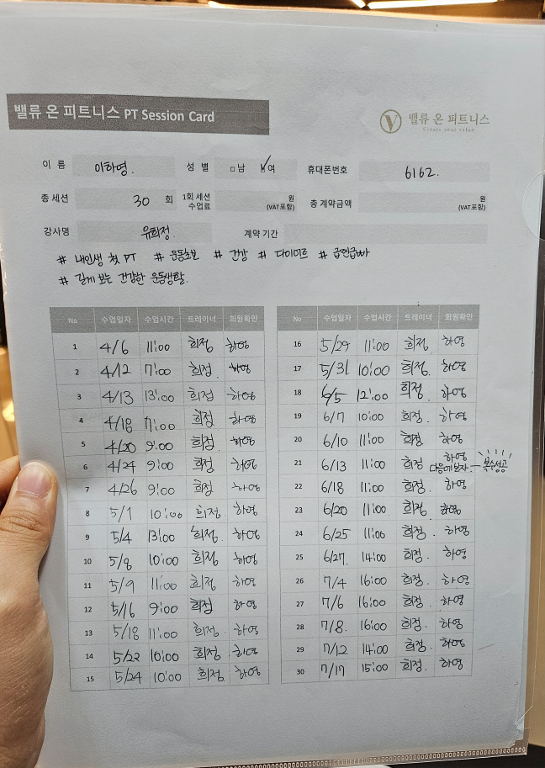 밸류 온 피트니스 PT Session Card
밸류 온 피트니스
이 름 이하영. 성 별 □남 ☑여 휴대폰번호 6162.
총 세션 30 회 1회 세션 수업료 원 (VAT포함) 총 계약금액 원 (VAT포함)
강사명 유희정 계약 기간
# 내인생 첫 PT # 운동초보 # 건강 # 다이어트 # 급찐급빠
# 길게 보는 건강한 운동생활
No 수업일자 수업시간 트레이너 회원확인
1 4/6 11:00 희정 하영
2 4/12 7:00 희정 하영
3 4/13 13:00 희정 하영
4 4/18 7:00 희정 하영
5 4/20 9:00 희정 하영
6 4/24 9:00 희정 하영
7 4/26 9:00 희정 하영
8 5/1 10:00 희정 하영
9 5/4 13:00 희정. 하영
10 5/8 10:00 희정 하영
11 5/9 11:00 희정 하영
12 5/16 9:00 희정 하영
13 5/18 11:00 희정. 하영
14 5/22 10:00 희정 하영
15 5/24 10:00 희정 하영
No 수업일자 수업시간 트레이너 회원확인
16 5/29 11:00 희정 하영
17 5/31 10:00 희정. 하영
18 6/5 12:00 희정 하영
19 6/7 10:00 희정. 하영
20 6/10 11:00 희정 하영
21 6/13 11:00 희정 하영
다음에보자. 복수성공
22 6/18 11:00 희정. 하영
23 6/20 11:00 희정 하영
24 6/25 11:00 희정. 하영
25 6/27 14:00 희정. 하영
26 7/4 16:00 희정. 하영
27 7/6 16:00 희정. 하영
28 7/8. 16:00 희정. 하영
29 7/12 14:00 희정. 하영
30 7/17 15:00 희정. 하영